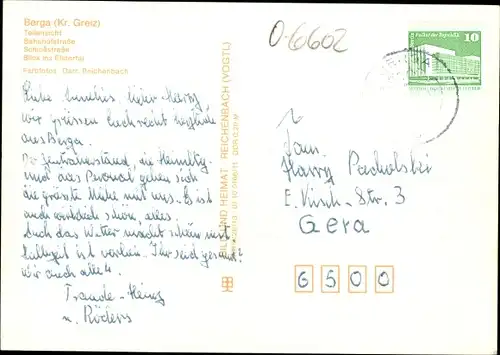 Berga (Kr. Greiz)
Teilansicht
Bahnhofstraße
Schloßstraße
Blick ins Elstertal
Farbfotos: Darr, Reichenbach
0-6602
10
Liebe Harry,
wir grüssen Euch recht herzlich
aus Berga.
Der Zentralverstand, die Heimltg.
und das Personal geben sich
die grösste Mühe mit uns. Es ist
auch wirklich schön, alles.
Auch das Wetter macht schön mit
ist vorbei. Ihr seid gesund?
Wir auch alle.
Traude - Heinz
u. Röders
BILD UND HEIMAT REICHENBACH (VOGTL)
Fam.
Harry Pacholski
E. Kisch-Str. 3
Gera
6500